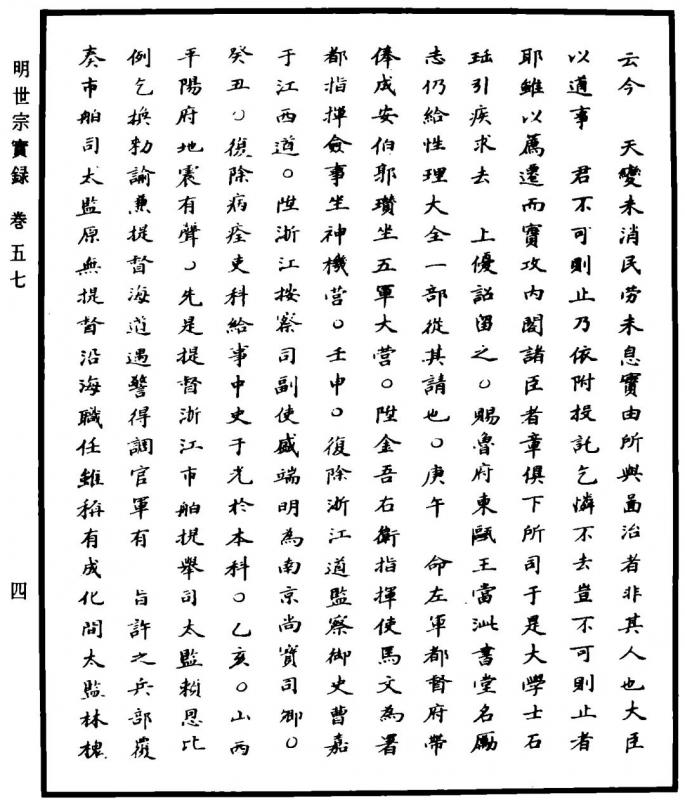 云今　天變未消民劳未息實由所與啚治者非其人也大臣
以道事　君不可則止乃依附投託乞憐不去豈不可則止者
耶雖以薦遷而實攻内閣諸臣者章俱下所司于是大學士石
珤引疾求去　上優詔留之○賜魯府東甌王當沘書堂名勵
志仍給性理大全一部從其請也○庚午　命左軍都督府帶
俸成安伯郭瓚坐五軍大营○陞金吾右衛指揮使馬文為署
都指揮僉事坐神機营○壬申○復除浙江道監察御史曹嘉
于江西道○陞浙江按察司副使盛端明為南京尚寳司卿○
癸丑○復除病痊吏科給事中史于光於本科○乙亥○山西
平陽府地震有聲○先是提督浙江市舶提舉司太監賴恩比
例乞換勑諭兼提督海道遇警得調官軍有　旨許之兵部覆
奏市舶司太監原無提督沿海職任雖稱有成化間太監林槐
明世宗實録　卷五七
四